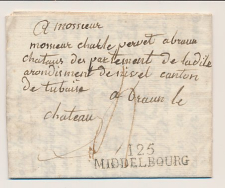 A monsieur
monsieur charle pervet a braun
chataux departement de la dile
arondisment de nivel canton
de tubaise
a Braun le
chateau
125
MIDDELBOURG